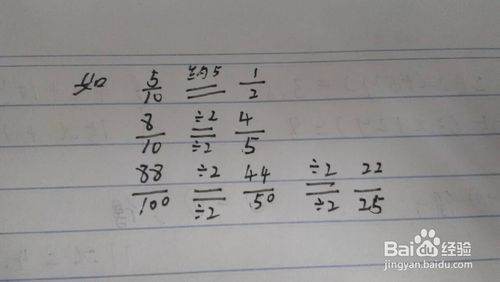 如 5/10 == 1/2
8/10 ÷2 == ÷2 4/5
88/100 ÷2 == ÷2 44/50 ÷2 == ÷2 22/25
Baidu经验
jingyan.baidu.com